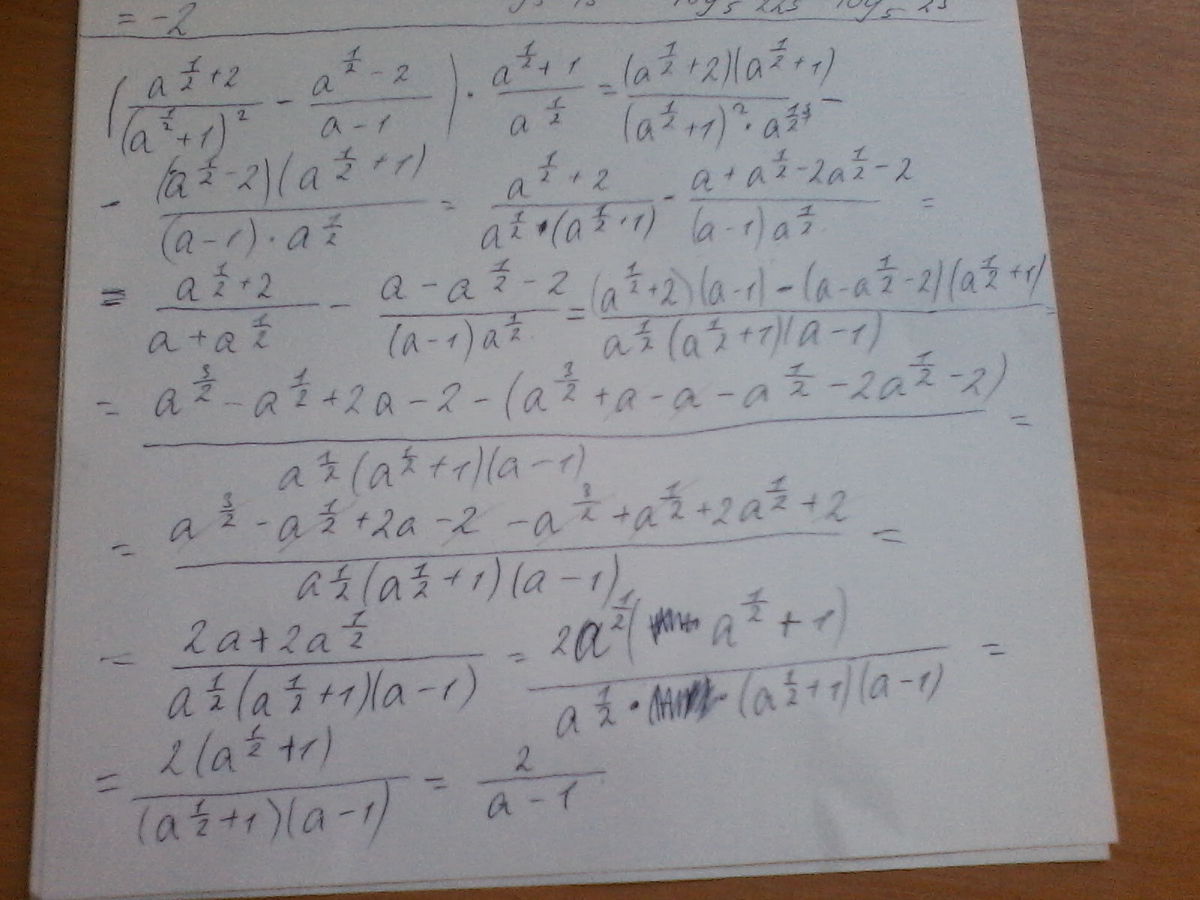 = -2
((a^(1/2) + 2)/(a^(1/2) + 1)^2 - (a^(1/2) - 2)/(a - 1)) · (a^(1/2) + 1)/a^(1/2) = ((a^(1/2) + 2)(a^(1/2) + 1))/((a^(1/2) + 1)^2 · a^(1/2)) -
- ((a^(1/2) - 2)(a^(1/2) + 1))/((a - 1) · a^(1/2)) = (a^(1/2) + 2)/(a^(1/2) · (a^(1/2) + 1)) - (a + a^(1/2) - 2a^(1/2) - 2)/((a - 1)a^(1/2)) =
= (a^(1/2) + 2)/(a + a^(1/2)) - (a - a^(1/2) - 2)/((a - 1)a^(1/2)) = ((a^(1/2) + 2)(a - 1) - (a - a^(1/2) - 2)(a^(1/2) + 1))/(a^(1/2)(a^(1/2) + 1)(a - 1)) =
= (a^(3/2) - a^(1/2) + 2a - 2 - (a^(3/2) + a - a - a^(1/2) - 2a^(1/2) - 2))/(a^(1/2)(a^(1/2) + 1)(a - 1)) =
= (a^(3/2) - a^(1/2) + 2a - 2 - a^(3/2) + a^(1/2) + 2a^(1/2) + 2)/(a^(1/2)(a^(1/2) + 1)(a - 1)) =
= (2a + 2a^(1/2))/(a^(1/2)(a^(1/2) + 1)(a - 1)) = (2a^(1/2)(a^(1/2) + 1))/(a^(1/2) · (a^(1/2) + 1)(a - 1)) =
= (2(a^(1/2) + 1))/((a^(1/2) + 1)(a - 1)) = 2/(a - 1)